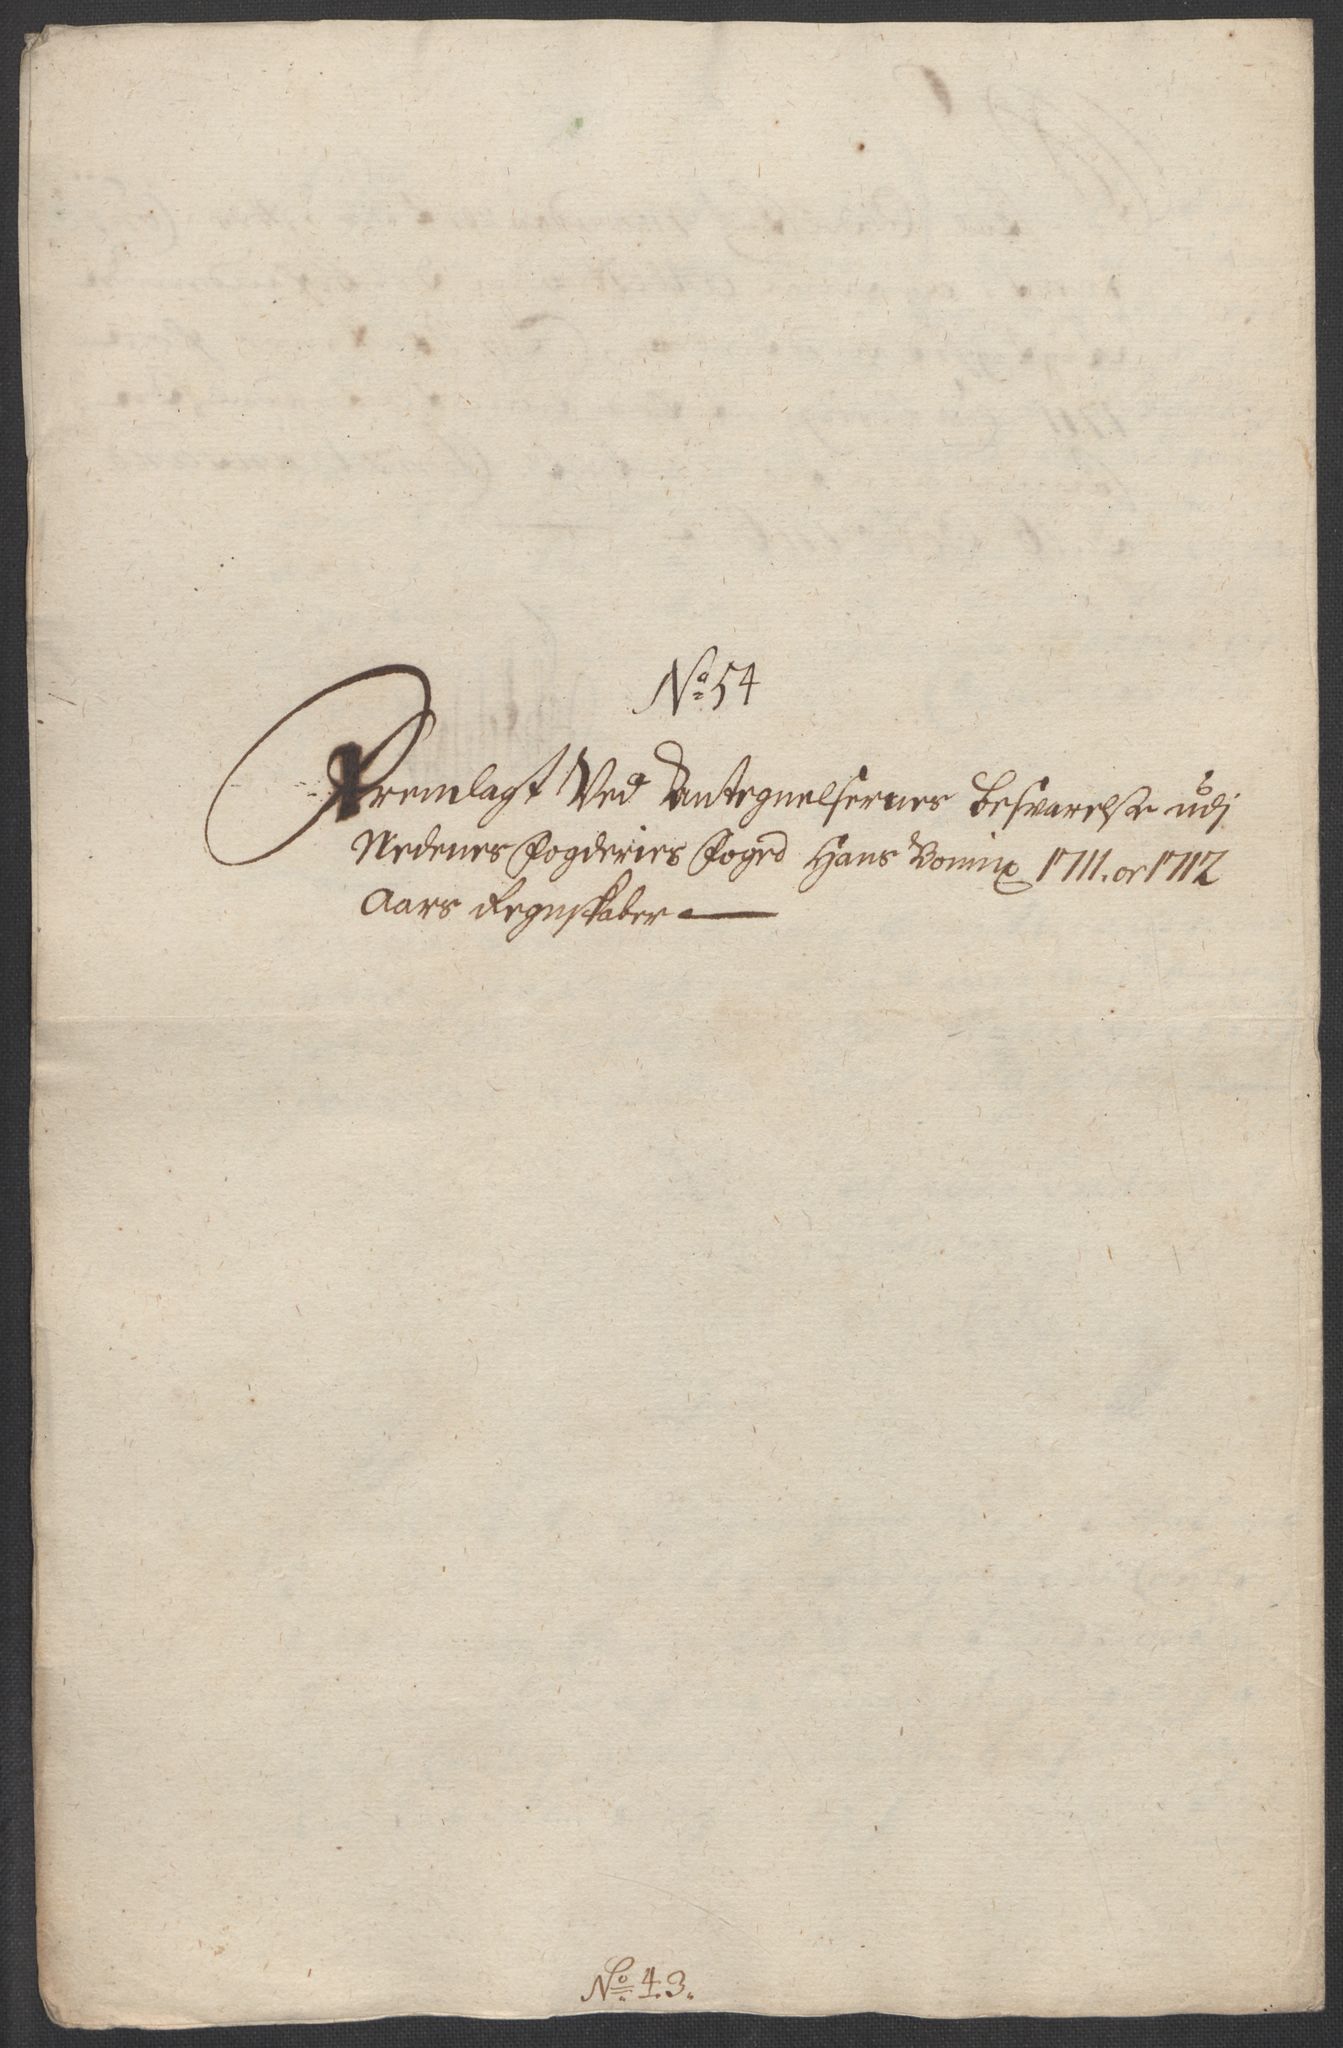 No: 54
Fremlagt Ved Antegnelsernes besvarelse udj
Nedenes Fogderies Foged Hans Bonnix 1711. oc 1712
Aars Regnskaber
No: 43.